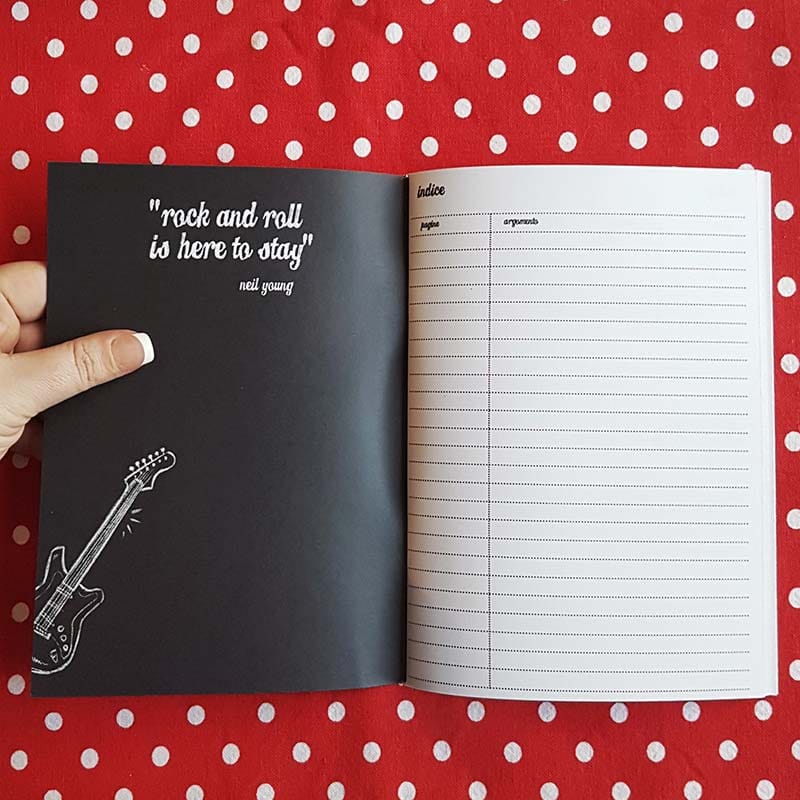 "rock and roll
is here to stay"
neil young
indice
pagine
argomento